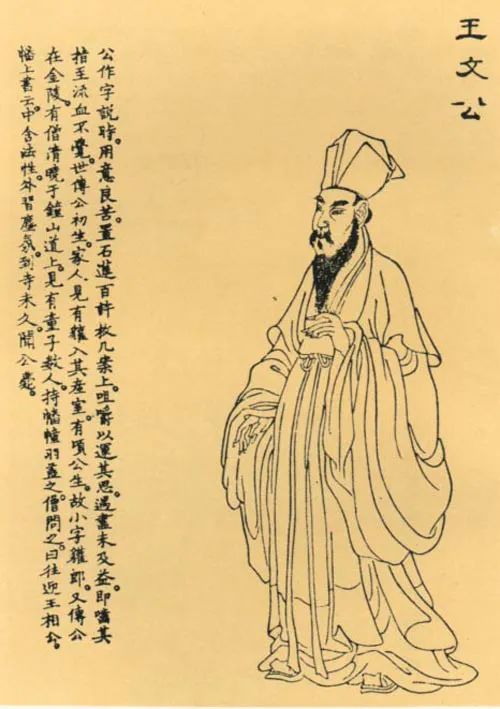 王文公
公作字說時。用意良苦。置石蓮百許枚几案上。咀嚼以運其思。遇盡未及益。即嚙其
指至流血不覺。世傳公初生。家人見有獾入其産室。有頃公生。故小字獾郎。又傳公
在金陵。有僧清曉于鐘山道上。見有童子數人。持幡幢羽蓋之。僧問之。曰往迎王相公。
幡上書云。中含法性。外習塵氛。到寺未久聞公薨。